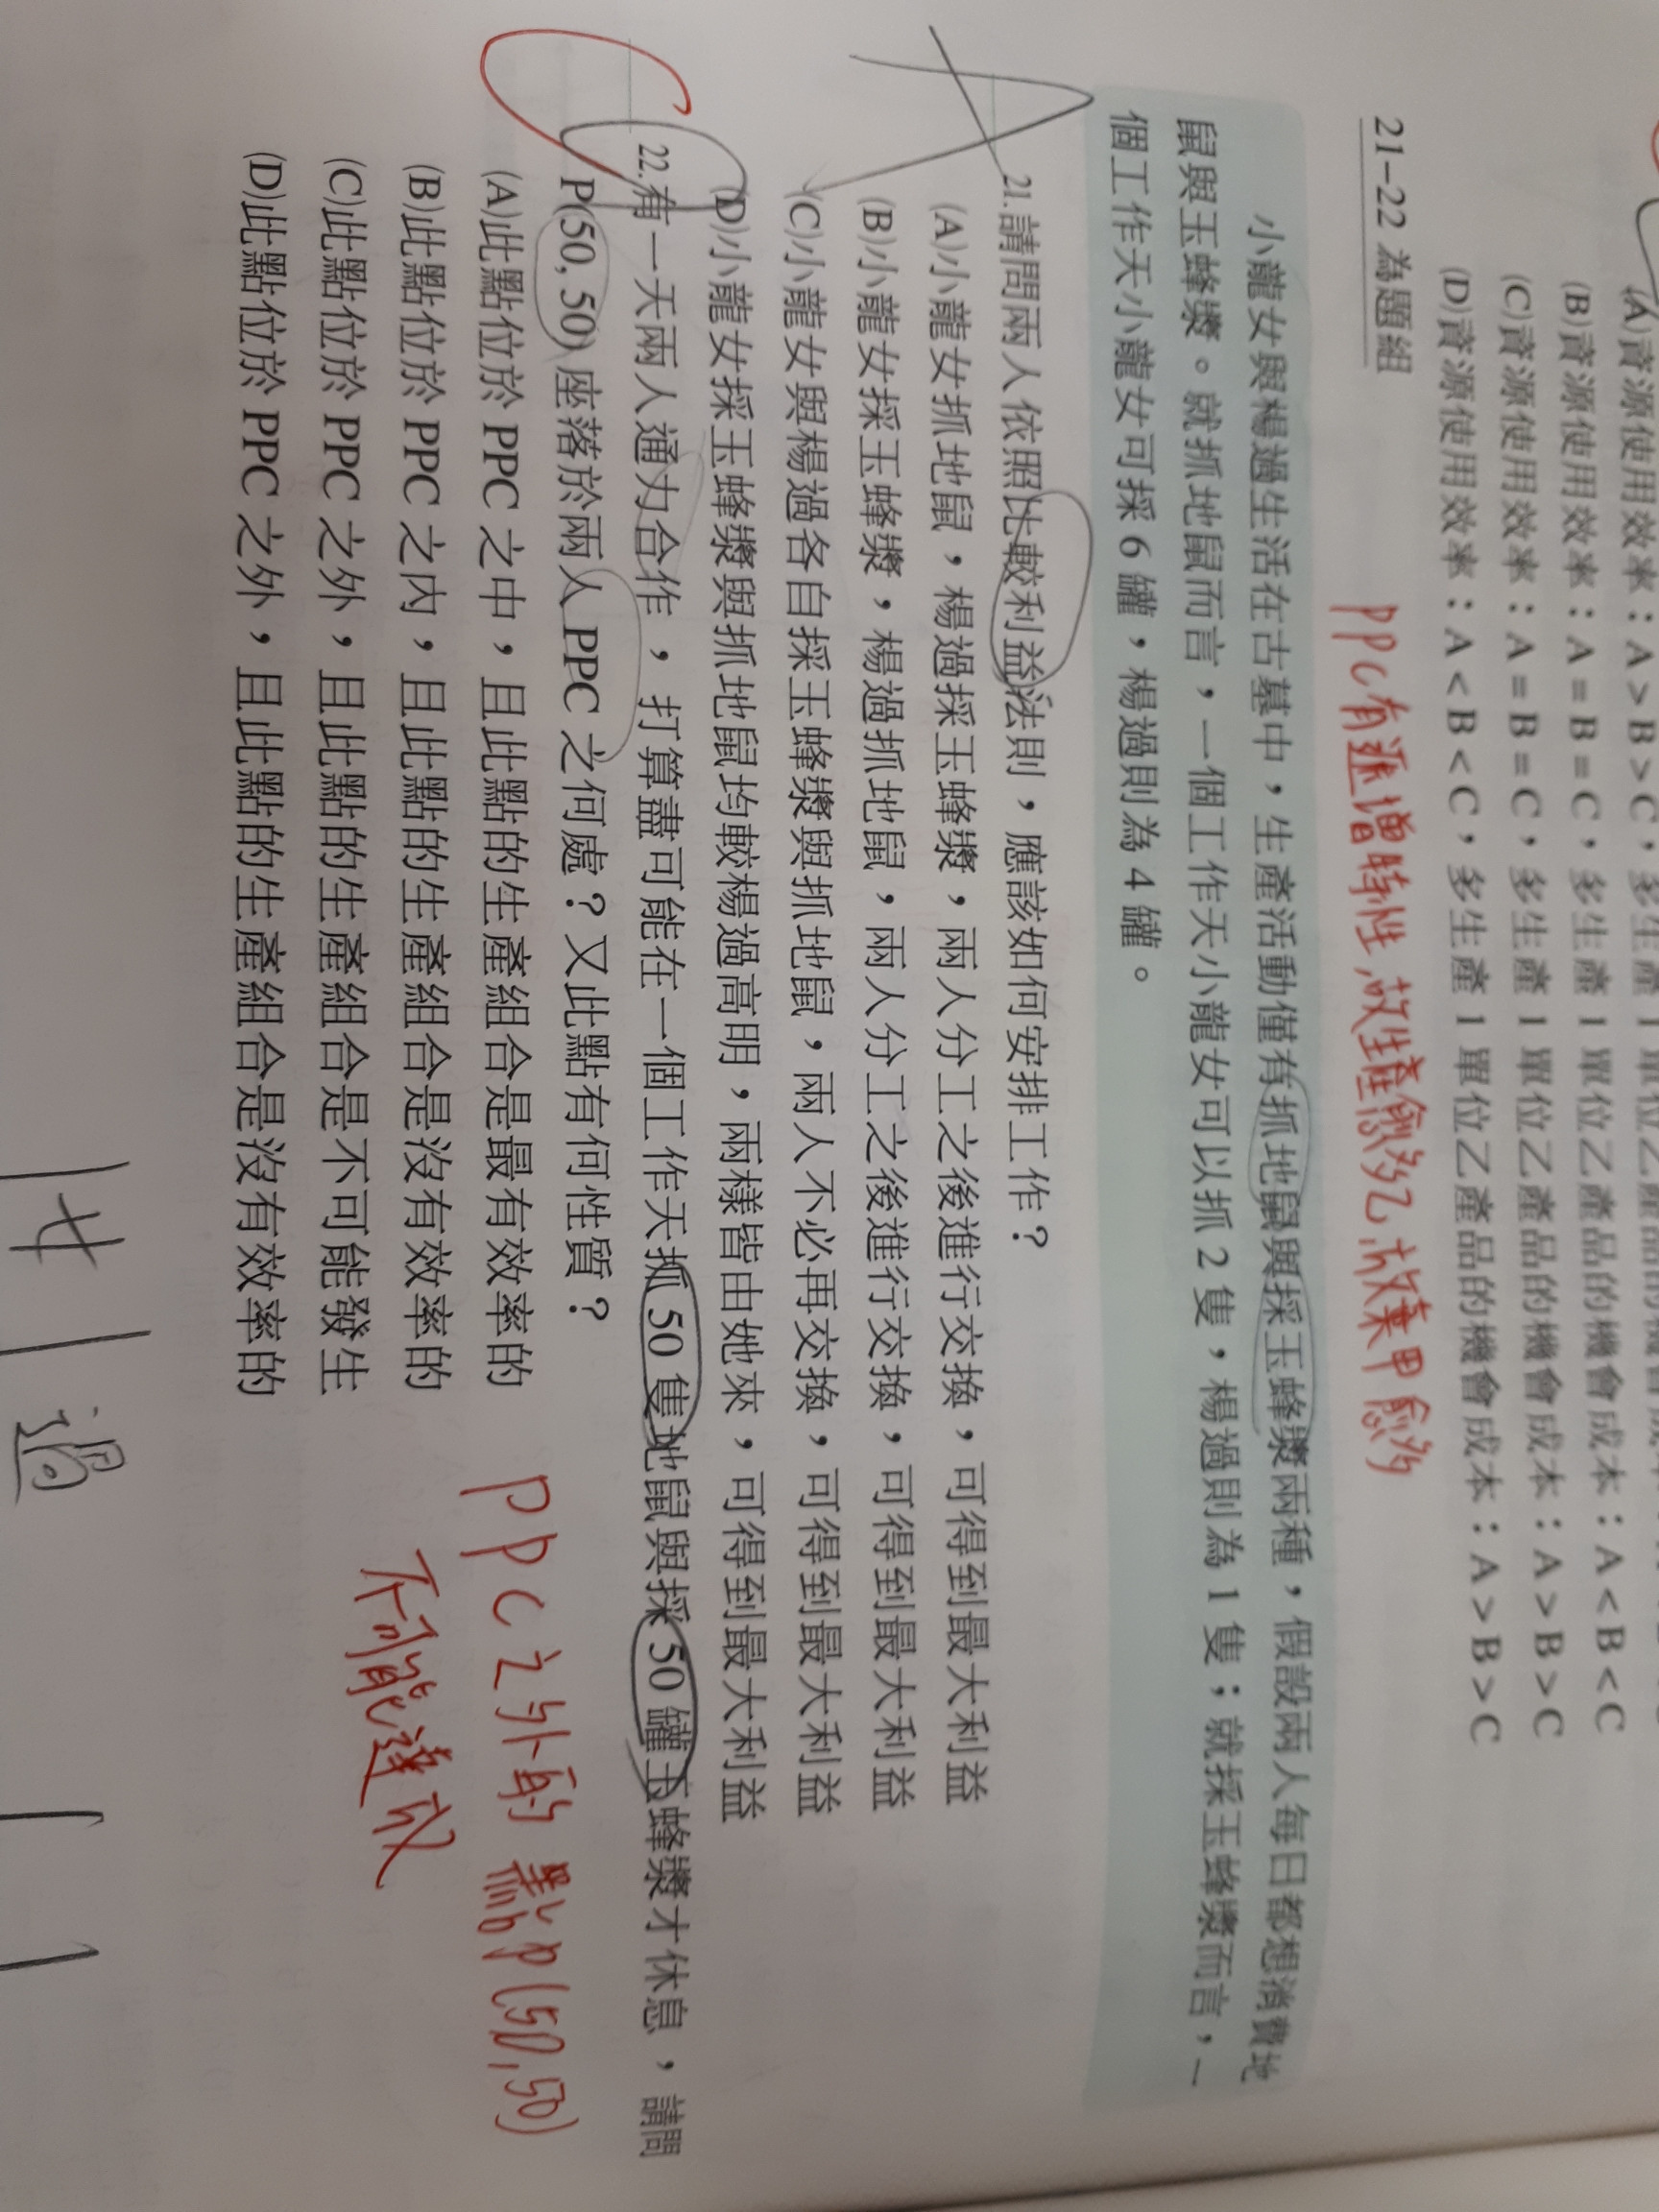 (A)資源使用效率：A＞B＞C，多生產 1 單位乙產品的機會成
(B)資源使用效率：A＝B＝C，多生產 1 單位乙產品的機會成本：A＜B＜C
(C)資源使用效率：A＝B＝C，多生產 1 單位乙產品的機會成本：A＞B＞C
(D)資源使用效率：A＜B＜C，多生產 1 單位乙產品的機會成本：A＞B＞C
PPC有遞增特性,故生產愈多乙,放棄甲愈多
21-22 為題組
小龍女與楊過生活在古墓中，生產活動僅有抓地鼠與採玉蜂漿兩種，假設兩人每日都想消費地
鼠與玉蜂漿。就抓地鼠而言，一個工作天小龍女可以抓 2 隻，楊過則為 1 隻；就採玉蜂漿而言，一
個工作天小龍女可採 6 罐，楊過則為 4 罐。
A
21.請問兩人依照比較利益法則，應該如何安排工作？
(A)小龍女抓地鼠，楊過採玉蜂漿，兩人分工之後進行交換，可得到最大利益
(B)小龍女採玉蜂漿，楊過抓地鼠，兩人分工之後進行交換，可得到最大利益
(C)小龍女與楊過各自採玉蜂漿與抓地鼠，兩人不必再交換，可得到最大利益
(D)小龍女採玉蜂漿與抓地鼠均較楊過高明，兩樣皆由她來，可得到最大利益
C
22.有一天兩人通力合作，打算盡可能在一個工作天抓 50 隻地鼠與採 50 罐玉蜂漿才休息，請問
P(50, 50) 座落於兩人 PPC 之何處？又此點有何性質？
(A)此點位於 PPC 之中，且此點的生產組合是最有效率的
(B)此點位於 PPC 之內，且此點的生產組合是沒有效率的
(C)此點位於 PPC 之外，且此點的生產組合是不可能發生
(D)此點位於 PPC 之外，且此點的生產組合是沒有效率的
PPC之外的點P(50,50)
不可能達成
過